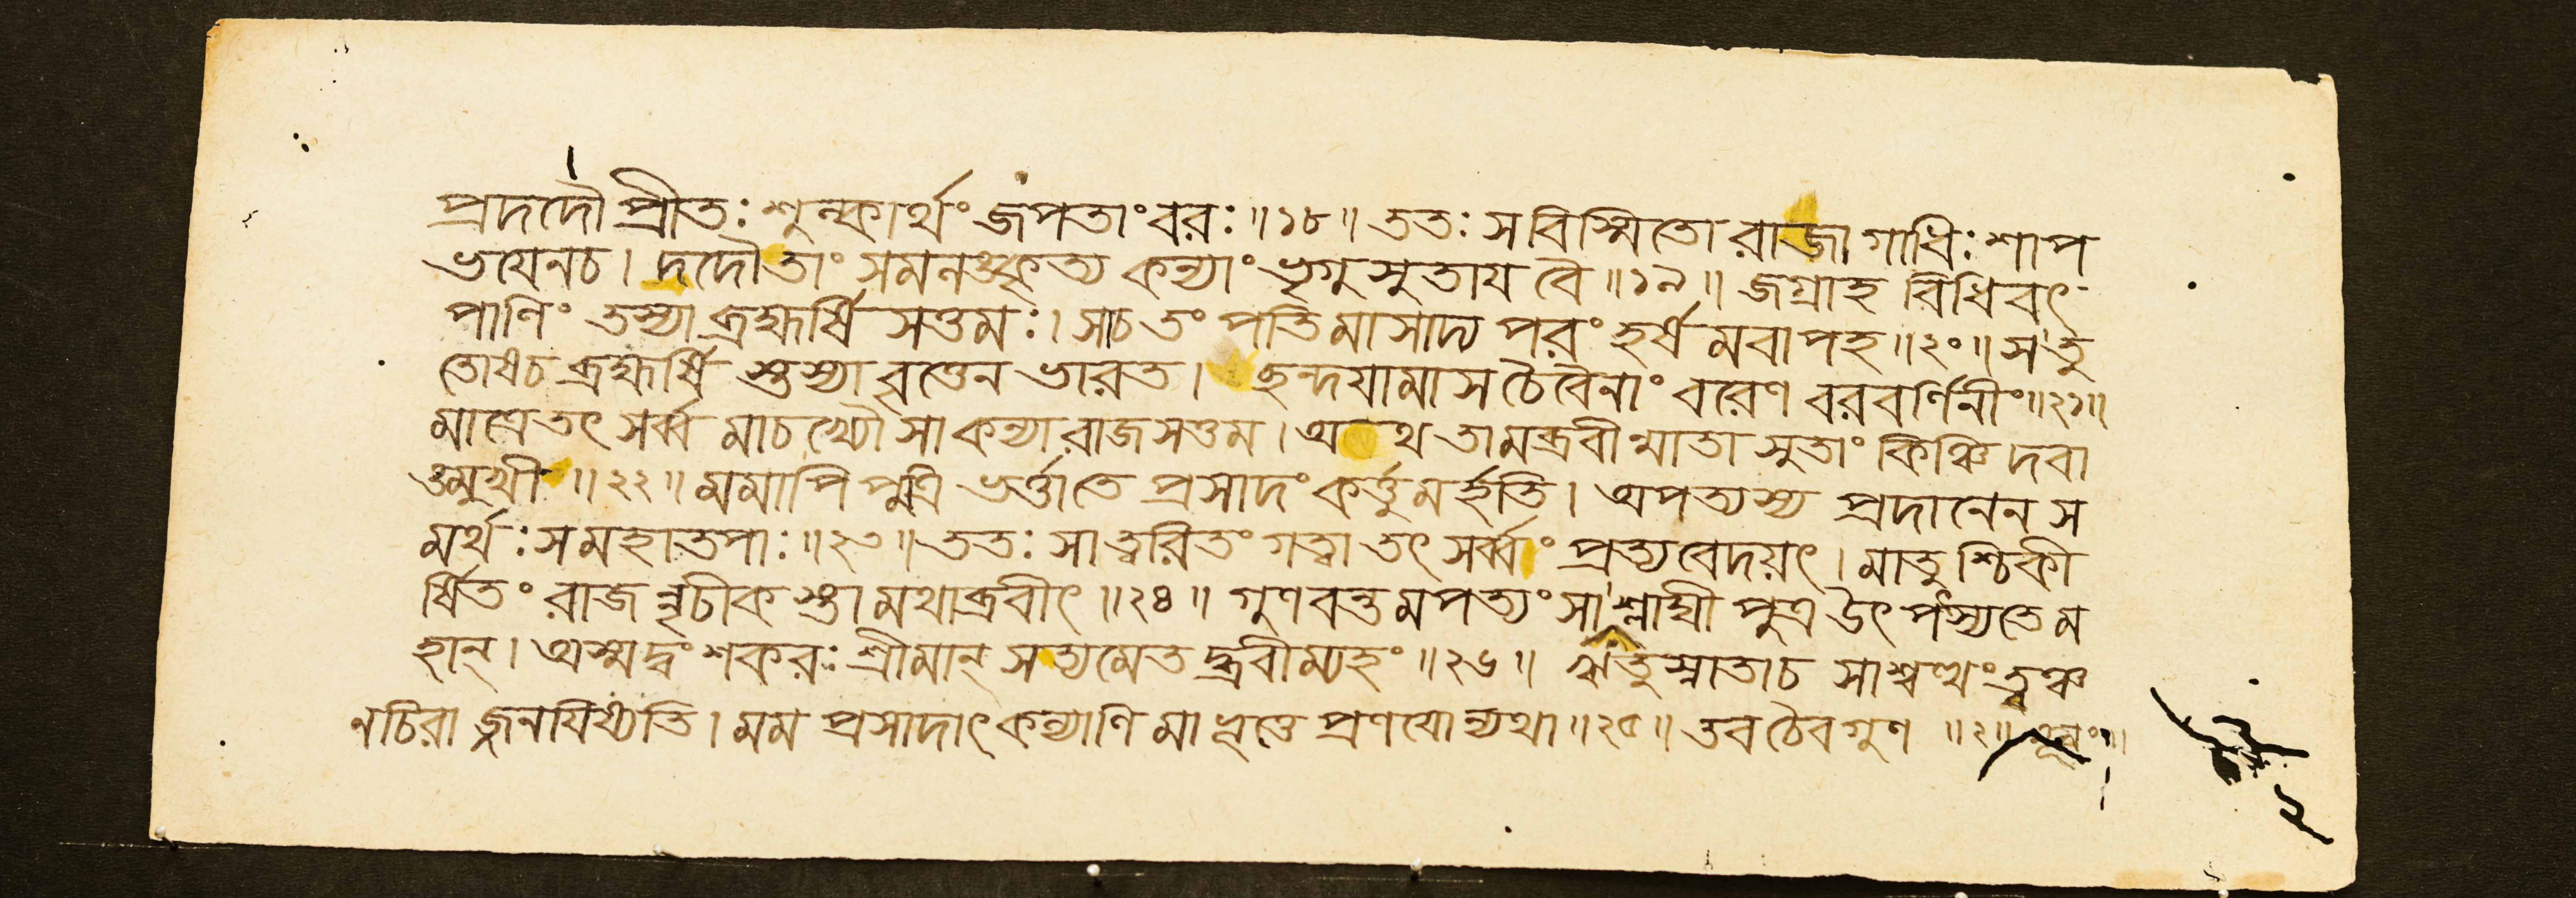 প্রদদৌ প্রীতঃ শুল্কার্থং জপতাং বরঃ ॥ ১৮ ॥ ততঃ স বিস্মিতো রাজা গাধিঃ শাপ
ভয়েনচ । দদৌ তাং সমলঙ্কৃত্য কন্যাং ভৃগুসুতায় বৈ ॥ ১৯ ॥ জগ্রাহ বিধিবৎ
পাণিং তস্যা ব্রহ্মর্ষি সত্তমঃ । সাচ তং পতিমাসাদ্য পরং হর্ষমবাপহ ॥ ২০ ॥ স তু
তোষচ ব্রহ্মর্ষি স্তস্যা বৃত্তেন ভারত । ছন্দয়ামাস চৈবৈনাং বরেণ বরবর্ণিনীং ॥ ২১ ॥
মাত্রে তৎ সর্ব্ব মাচখ্যৌ সা কন্যা রাজসত্তম । অথ তামব্রবীন্মাতা সুতাং কিঞ্চিদবা
ঙমুখী ॥ ২২ ॥ মমাপি পুত্রি ভর্ত্তাতে প্রসাদং কর্ত্তুমর্হতি । অপত্যস্য প্রদানেন স
মর্থঃ স মহাতপাঃ ॥ ২৩ ॥ ততঃ সা ত্বরিতং গত্বা তৎ সর্ব্বাং প্রত্যবেদয়ৎ । মাতুশ্চিকী
র্ষিতং রাজন্নৃচীক স্তামথাব্রবীৎ ॥ ২৪ ॥ গুণবন্তমপত্যং সা শ্লাঘী পুত্র উৎপৎস্যতে ম
হান্ । অস্মদ্বংশকরঃ শ্রীমান্ সত্যমেতদ্ব্রবীম্যহং ॥ ২৬ ॥ ঋতুস্নাতাচ সাশ্বত্থং ত্বঞ্চ
নচিরাজ্জনয়িষ্যতি । মম প্রসাদাৎ কল্যাণি মা ভূত্তে প্রণয়োন্যথা ॥ ২৫ ॥ তব চৈব গুণ ॥ ২ ॥
২